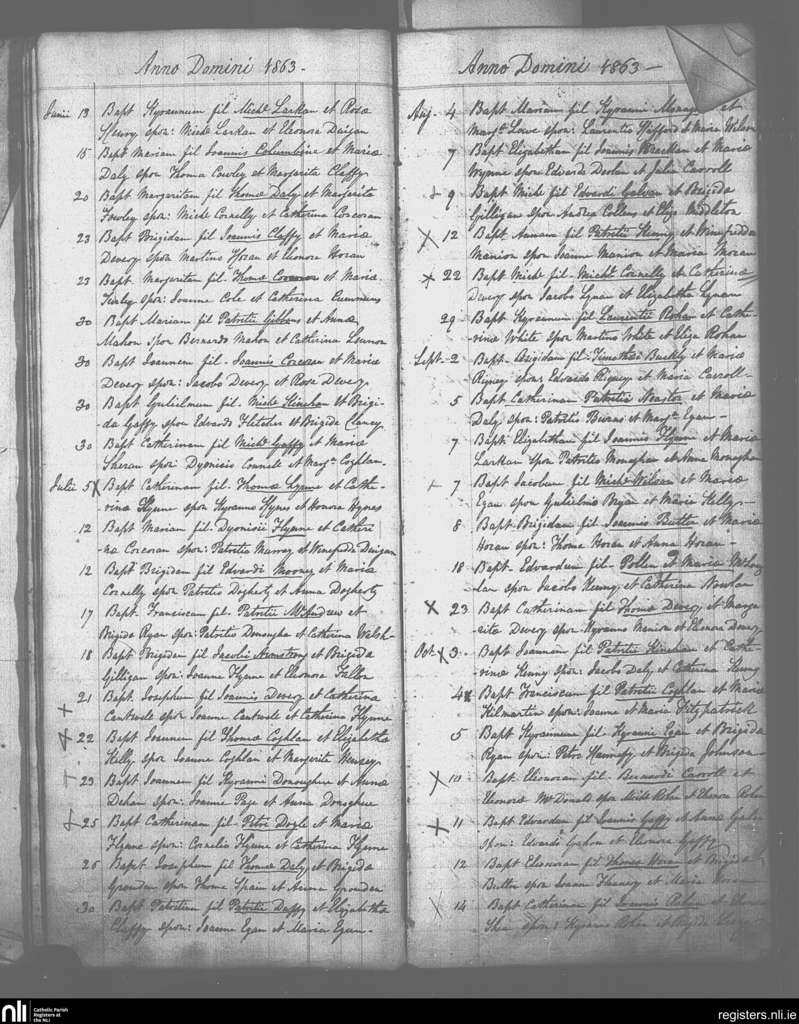 Anno Domini 1863 -
Junii 13 Bapt Kyrannum fil Michl Larkan et Rosæ
Henry spon: Michl Larkan et Eleonora Duigan
15 Bapt Mariam fil Joannis Columbine et Mariæ
Daly spon Thoma Cowley et Margarita Claffy
20 Bapt Margaritam fil Thomæ Daly et Margarita
Fowley spon: Michl Connelly et Catherina Corcoran
23 Bapt Brigidam fil Joannis Claffy et Mariæ
Devery spon Martino Horan et Eleonora Horan
23 Bapt. Margaritam fil. Thomæ et Mariæ
spon: Joanne Cole et Catherina Cummins
30 Bapt Mariam fil Patritii Gibbons et Annæ
Mahon spon Bernardo Mahon et Catherina
30 Bapt Joannem fil - Joannis Corcoran et Mariæ
Devery spon: Jacobo Devery et Rosa Devery
30 Bapt Gulielmum fil. Michl Kinehan et Brigi-
da Gaffy spon Edwardo Fletcher et Brigida Clancy
30 Bapt Catherinam fil Michl Gaffy et Mariæ
Sheran spon: Dyonisio Connell et Margt Coghlan-
Julii 5 X Bapt Catherinam fil. Thomæ Lynne et Cathe-
rinæ Flynne spon Kyranno Hynes et Honora Hynes
12 Bapt Mariam fil Dyonisii Flynne et Catheri
-næ Corcoran spon: Patritio Murray et Winefrida Duigan
12 Bapt Brigidam fil Edvardi Mooney et Mariæ
Connelly spon Patritio Dogherty et Anna Dogherty
17 Bapt. Franciscum fil. Patritii McAndrew et
Brigida Ryan spon: Patritio Donoughu et Catherina Welsh-
18 Bapt Brigidam fil Jacobi Armstrong et Brigida
Gilligan spon: Joanne Flynne et Eleonora Fallon
21 Bapt. Josephum fil Joannis Devery et Catherina
Cantwele spon Joanne Cantwele et Catherina Flynne
22 Bapt Joannem fil Thomæ Coghlan et Elizabetha
Kelly spon Joanne Coghlan et Margarita
23 Bapt Joannem fil Kyranni Donoughue et Annæ
Dehan spon: Joanne Page et Anna Donoghue
25 Bapt Catherinam fil. Petri Doyle et Mariæ
Flynne spon: Cornelio Flynne et Catherina Flynne
26 Bapt Josephum fil Thomæ Daly et Brigida
GrenDan spon Thoma Spain et Anna GrenDan
30 Bapt Patritium fil Patritii Duffy et Elizabetha
Claffy spon: Joanne Egan et Maria Egan-
Anno Domini 1863 -
Aug. 4 Bapt Mariam fil Kyranni et
Margt Lowe spon: Laurentio Stafford & Maria Wilson
7 Bapt Elizabetham fil Joannis Bracklan et Mariæ
Wynne spon Edvardo Dolan et Julia Carroll
9 Bapt Michl fil Edvardi Galvan et Brigida
Gilligan spon Andrea Collens et Eliza Middleton
X 12 Bapt Annam fil Patritii Kenny et Winefridæ
Manion spon Joanne Manion et Maria Moran
X 22 Bapt Michl fil. Michl Connelly et Catherinæ
Devery spon Jacobo Lynan et Elizabetha Lynan
29 Bapt Kyrannum fil Laurentii Rohan et Cathe-
rinæ White spon Martino White et Eliza Rohan
Sept - 2 Bapt - Brigidam fil Timothei Buckly et Mariæ
Rigney spon: Edvardo Rigney et Maria Carroll-
5 Bapt Catherinam Patritii et Mariæ
Daly spon: Patritio Burns et Margt Egan-
7 Bapt Elizabetham fil Joannis Flynne et Mariæ
Larkan spon Patritio Monaghan et Anna Monaghan
7 Bapt Jacobum fil Michl Wilson et Mariæ
Egan spon Gulielmo Bryan et Maria Kelly-
8 Bapt Brigidam fil Joannis Butler et Mariæ
Horan spon: Thoma Horan et Anna Horan-
18 Bapt. Edvardum fil - Pollen et Mariæ
spon Jacobo Kenny et Catherina Nowlan
X 23 Bapt Catherinam fil Thomæ Devery et Marga-
ritæ Devery spon Kyranno Manion et Eleonora Devery
Oct. X 3 Bapt Joannem fil Patritii Kinehan et Cathe-
rinæ Kenny spon: Jacobo Daly et Catherina Kenny
4 X Bapt Franciscum fil Patritii Coghlan et Mariæ
Kilmartin spon: Joanne et Maria Fitzpatrick
5 Bapt Kyrannum fil- Kyranni Egan et Brigida
Ryan spon: Petro et Brigida Johnson-
X 10 Bapt. Elenoram fil. Bernardi Carroll et
Eleonora McDonald spon Michl Rohan et Eleonora Rohan
X 11 Bapt Edvardum fil Joannis Gaffy et Annæ
spon: Edvardo Gahon et Eleonora Gaffy
12 Bapt Elionoram fil Thomæ Horan et Brigida
Butler spon Joanne et Maria
14 Bapt Catherinam fil Joannis Rohan et
Shea spon: Kyranno Rohan et Brigida
nli
Catholic Parish
Registers at
the NLI
registers.nli.ie